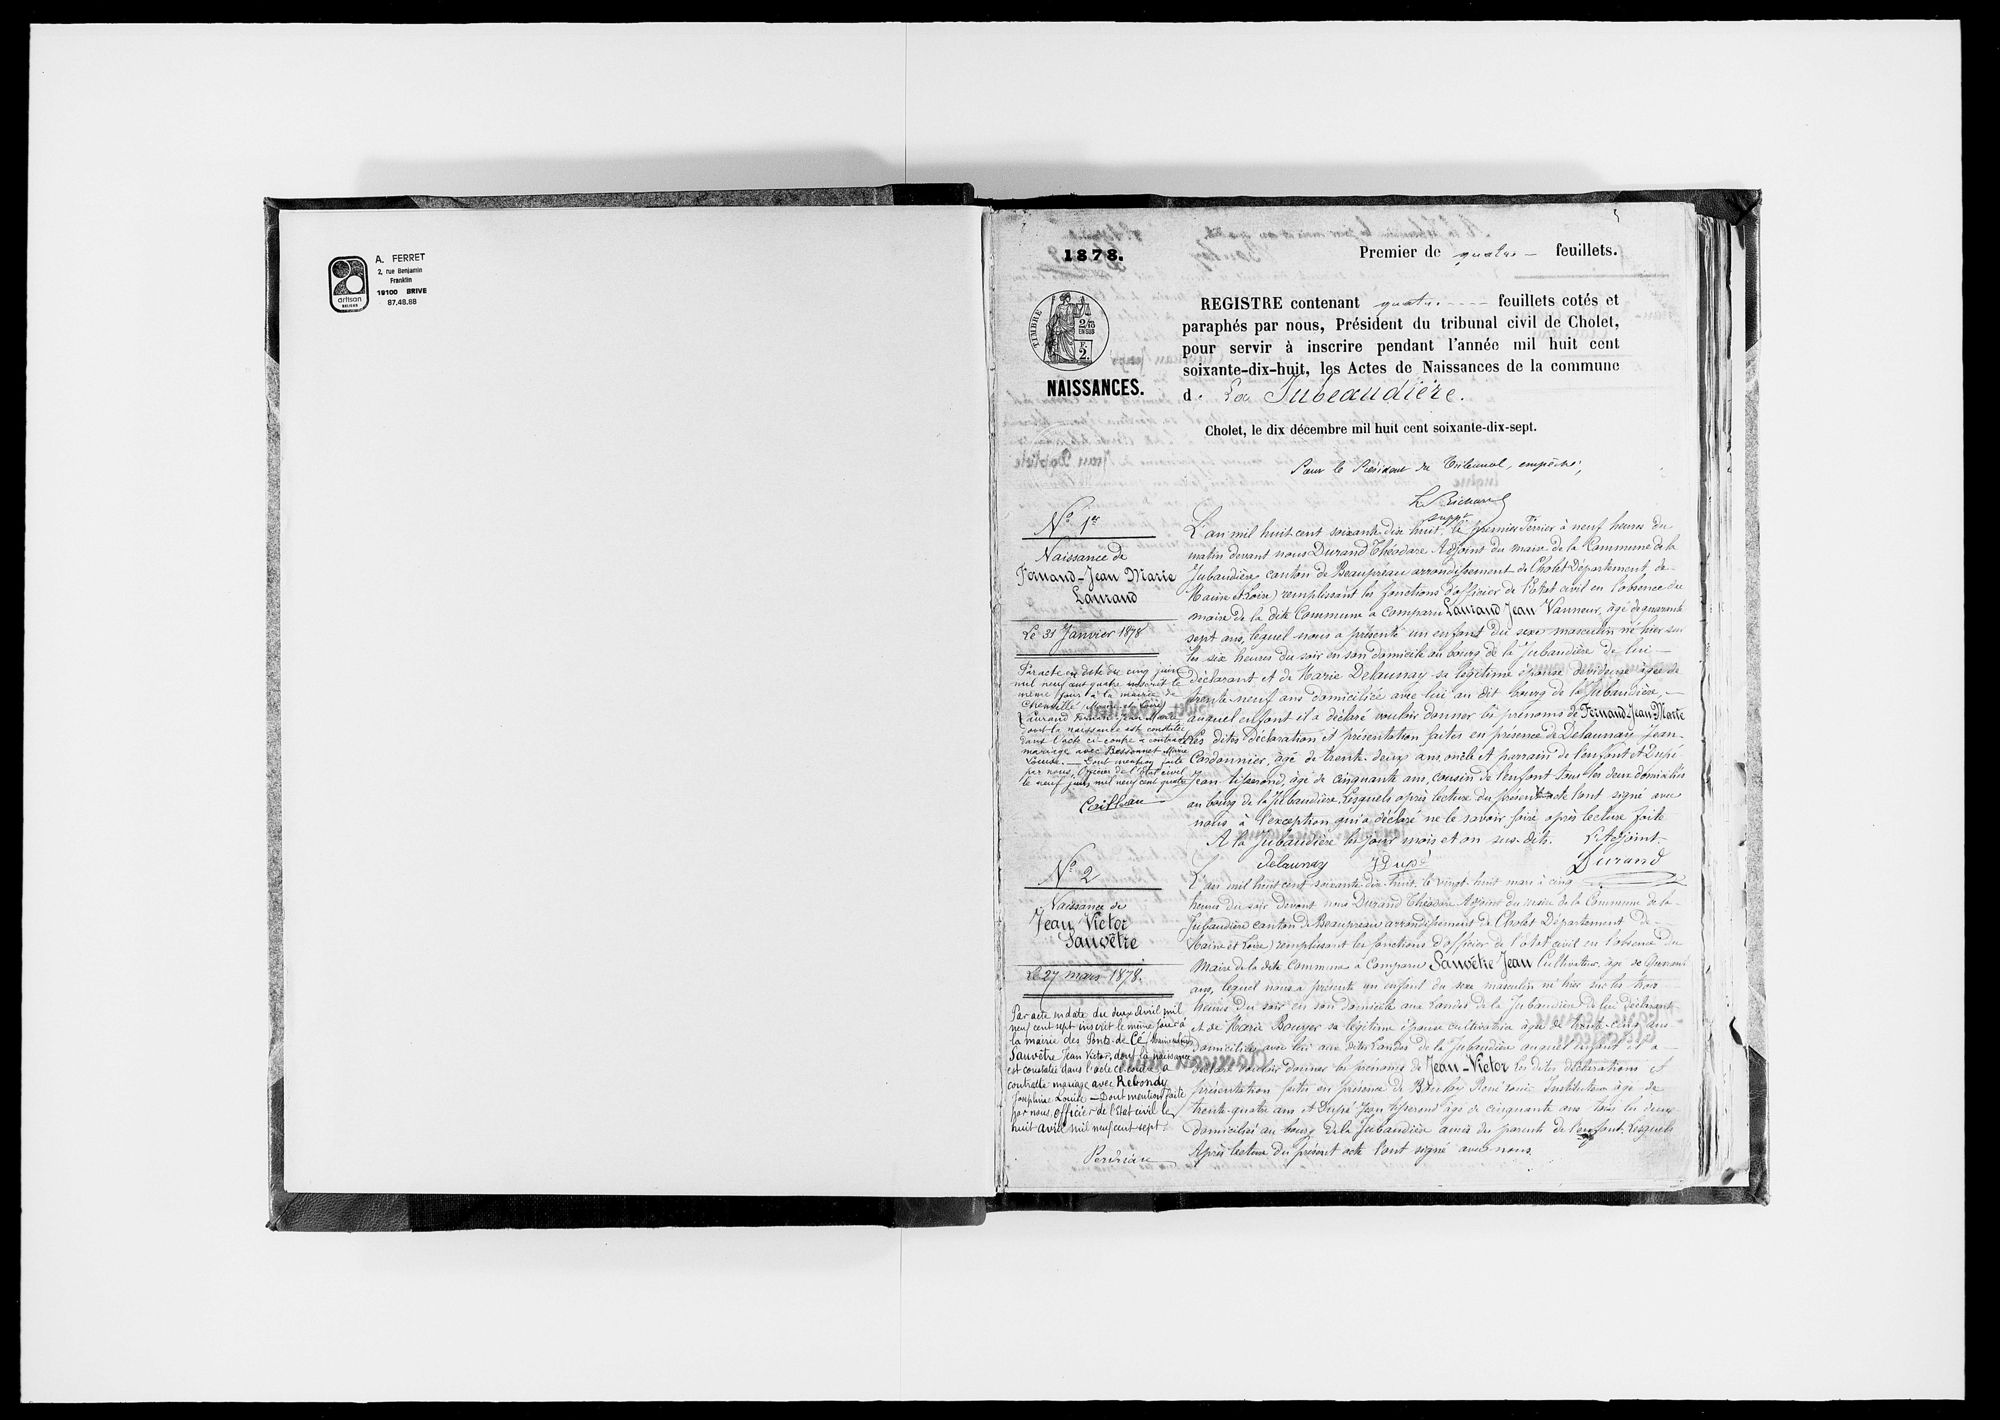 A. FERRET
2, rue Benjamin
Franklin
19100 BRIVE
87.48.88
artisan
RELIEUR
1878.
Premier de quatre feuillets.
TIMBRE
2/10
EN SUS
F.
2.
NAISSANCES.
REGISTRE contenant quatre feuillets cotés et
paraphés par nous, Président du tribunal civil de Cholet,
pour servir à inscrire pendant l'année mil huit cent
soixante-dix-huit, les Actes de Naissances de la commune
d. La Jubeaudière.
Cholet, le dix décembre mil huit cent soixante-dix-sept.
Pour le Président du Tribunal, empêché,
Suppt
No 1er
Naissance de
Fernand-Jean Marie
Laurand
Le 31 Janvier 1878
Par acte en date du cinq juin
mil neuf cent quatre inscrit le
même jour à la mairie de
Chemillé (Maine et Loire)
Laurand Fernand Jean Marie
dont la naissance est constatée
dans l'acte ci-contre a contracté
mariage avec Bessonnet Marie
Louise. — Dont mention faite
par nous, Officier de l'Etat civil
le neuf juin mil neuf cent quatre
L'an mil huit cent soixante dix huit, le premier Février à neuf heures du
matin devant nous Durand Théodore Adjoint du maire de la Commune de la
Jubaudière canton de Beaupréau arrondissement de Cholet Département de
Maine et Loire) remplissant les fonctions d'officier de l'état civil en l'absence du
maire de la dite Commune a comparu Laurand Jean Vanneur, âgé de quarante
sept ans, lequel nous a présenté un enfant du sexe masculin né hier sur
les six heures du soir en son domicile au bourg de la Jubaudière de lui
déclarant et de Marie Delaunay sa légitime épouse dévideuse âgée de
trente-neuf ans domiciliée avec lui au dit bourg de la Jubaudière,
auquel enfant il a déclaré vouloir donner les prénoms de Fernand-Jean-Marie
Les dites déclaration et présentation faites en présence de Delaunay Jean
Cordonnier, âgé de trente-deux ans, oncle et parrain de l'enfant et Dupé
Jean tisserand, âgé de cinquante ans, cousin de l'enfant tous les deux domiciliés
au bourg de la Jubaudière. Lesquels après lecture du présent acte l'ont signé avec
nous à l'exception qui a déclaré ne le savoir faire après lecture faite
A la Jubaudière les jour mois et an sus-dits. L'Adjoint
delaunay J Dupé Durand
No 2
Naissance de
Jean Victor
Sauvêtre
Le 27 mars 1878.
Par acte en date du deux avril mil
neuf cent sept inscrit le même jour à
la mairie des Ponts-de-Cé (Maine et Loire)
Sauvêtre Jean Victor, dont la naissance
est constatée dans l'acte ci-contre a
contracté mariage avec Rebondy
Joséphine Louise — Dont mention faite
par nous, officier de l'Etat civil le
huit avril mil neuf cent sept.
L'an mil huit cent soixante-dix-huit, le vingt-huit mars à cinq
heures du soir devant nous Durand Théodore Adjoint du maire de la Commune de la
Jubaudière canton de Beaupréau arrondissement de Cholet Département de
Maine et Loire) remplissant les fonctions d'officier de l'état civil en l'absence du
Maire de la dite Commune a comparu Sauvêtre Jean Cultivateur, âgé de quarante
ans, lequel nous a présenté un enfant du sexe masculin né hier sur les trois
heures du soir en son domicile aux Landes de la Jubaudière de lui déclarant
et de Marie Bouyer sa légitime épouse cultivatrice âgée de trente-cinq ans
domiciliée avec lui aux dites Landes de la Jubaudière auquel enfant il a
déclaré vouloir donner les prénoms de Jean-Victor Les dites déclarations et
présentation faites en présence de René Louis Instituteur âgé de
trente-quatre ans et Dupé Jean tisserand âgé de cinquante ans tous les deux
domiciliés au bourg de la Jubaudière amis des parents de l'enfant. Lesquels
Après lecture du présent acte l'ont signé avec nous.